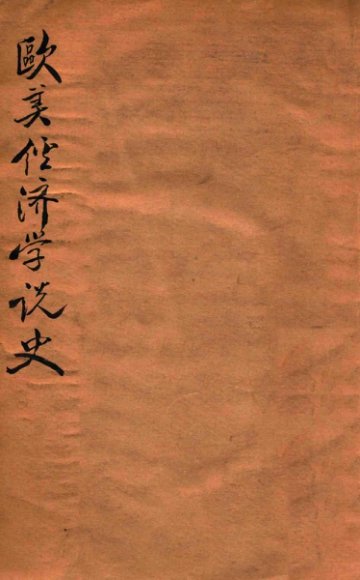 歐美经济学说史